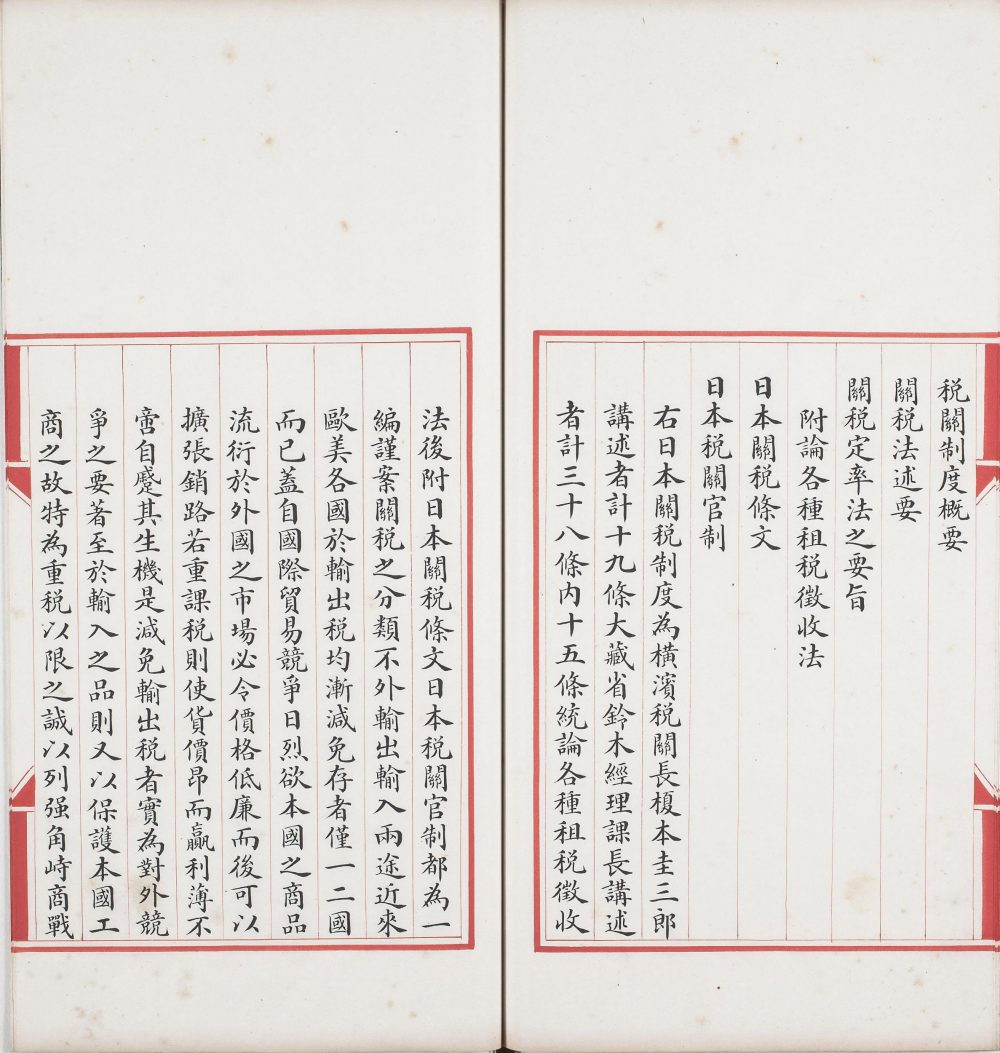 税關制度概要
關税法述要
關税定率法之要旨
附論各種租税徵收法
日本關税條文
日本税關官制
右日本關税制度為橫濱税關長榎本圭三郎
講述者計十九條大藏省鈴木經理課長講述
者計三十八條内十五條統論各種租税徵收
法後附日本關税條文日本税關官制都為一
編謹案關税之分類不外輸出輸入兩途近來
歐美各國於輸出税均漸減免存者僅一二國
而已蓋自國際貿易競爭日烈欲本國之商品
流衍於外國之市場必令價格低廉而後可以
擴張銷路若重課税則使貨價昂而贏利薄不
啻自蹙其生機是減免輸出税者實為對外競
爭之要著至於輸入之品則又以保護本國工
商之故特為重税以限之誠以列强角峙商戰